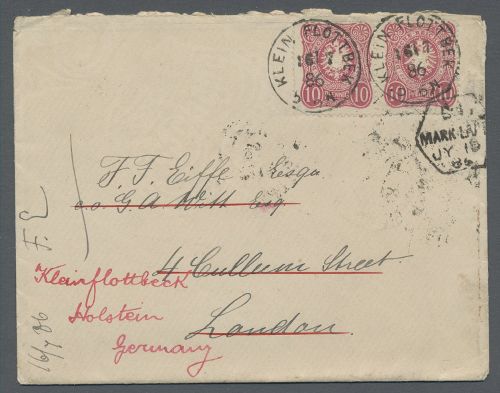 KLEIN FLOTTBEK
16 7
86
KLEIN FLOTTBEK
16 7
86
10 10 10 10
MARK LA
JY 18
86
F. F. Eiffe Esqu
c.o. G. A. Witt Esq
4 Cullum Street.
London.
Kleinflottbeck
Holstein
Germany
16/7 86 F. E